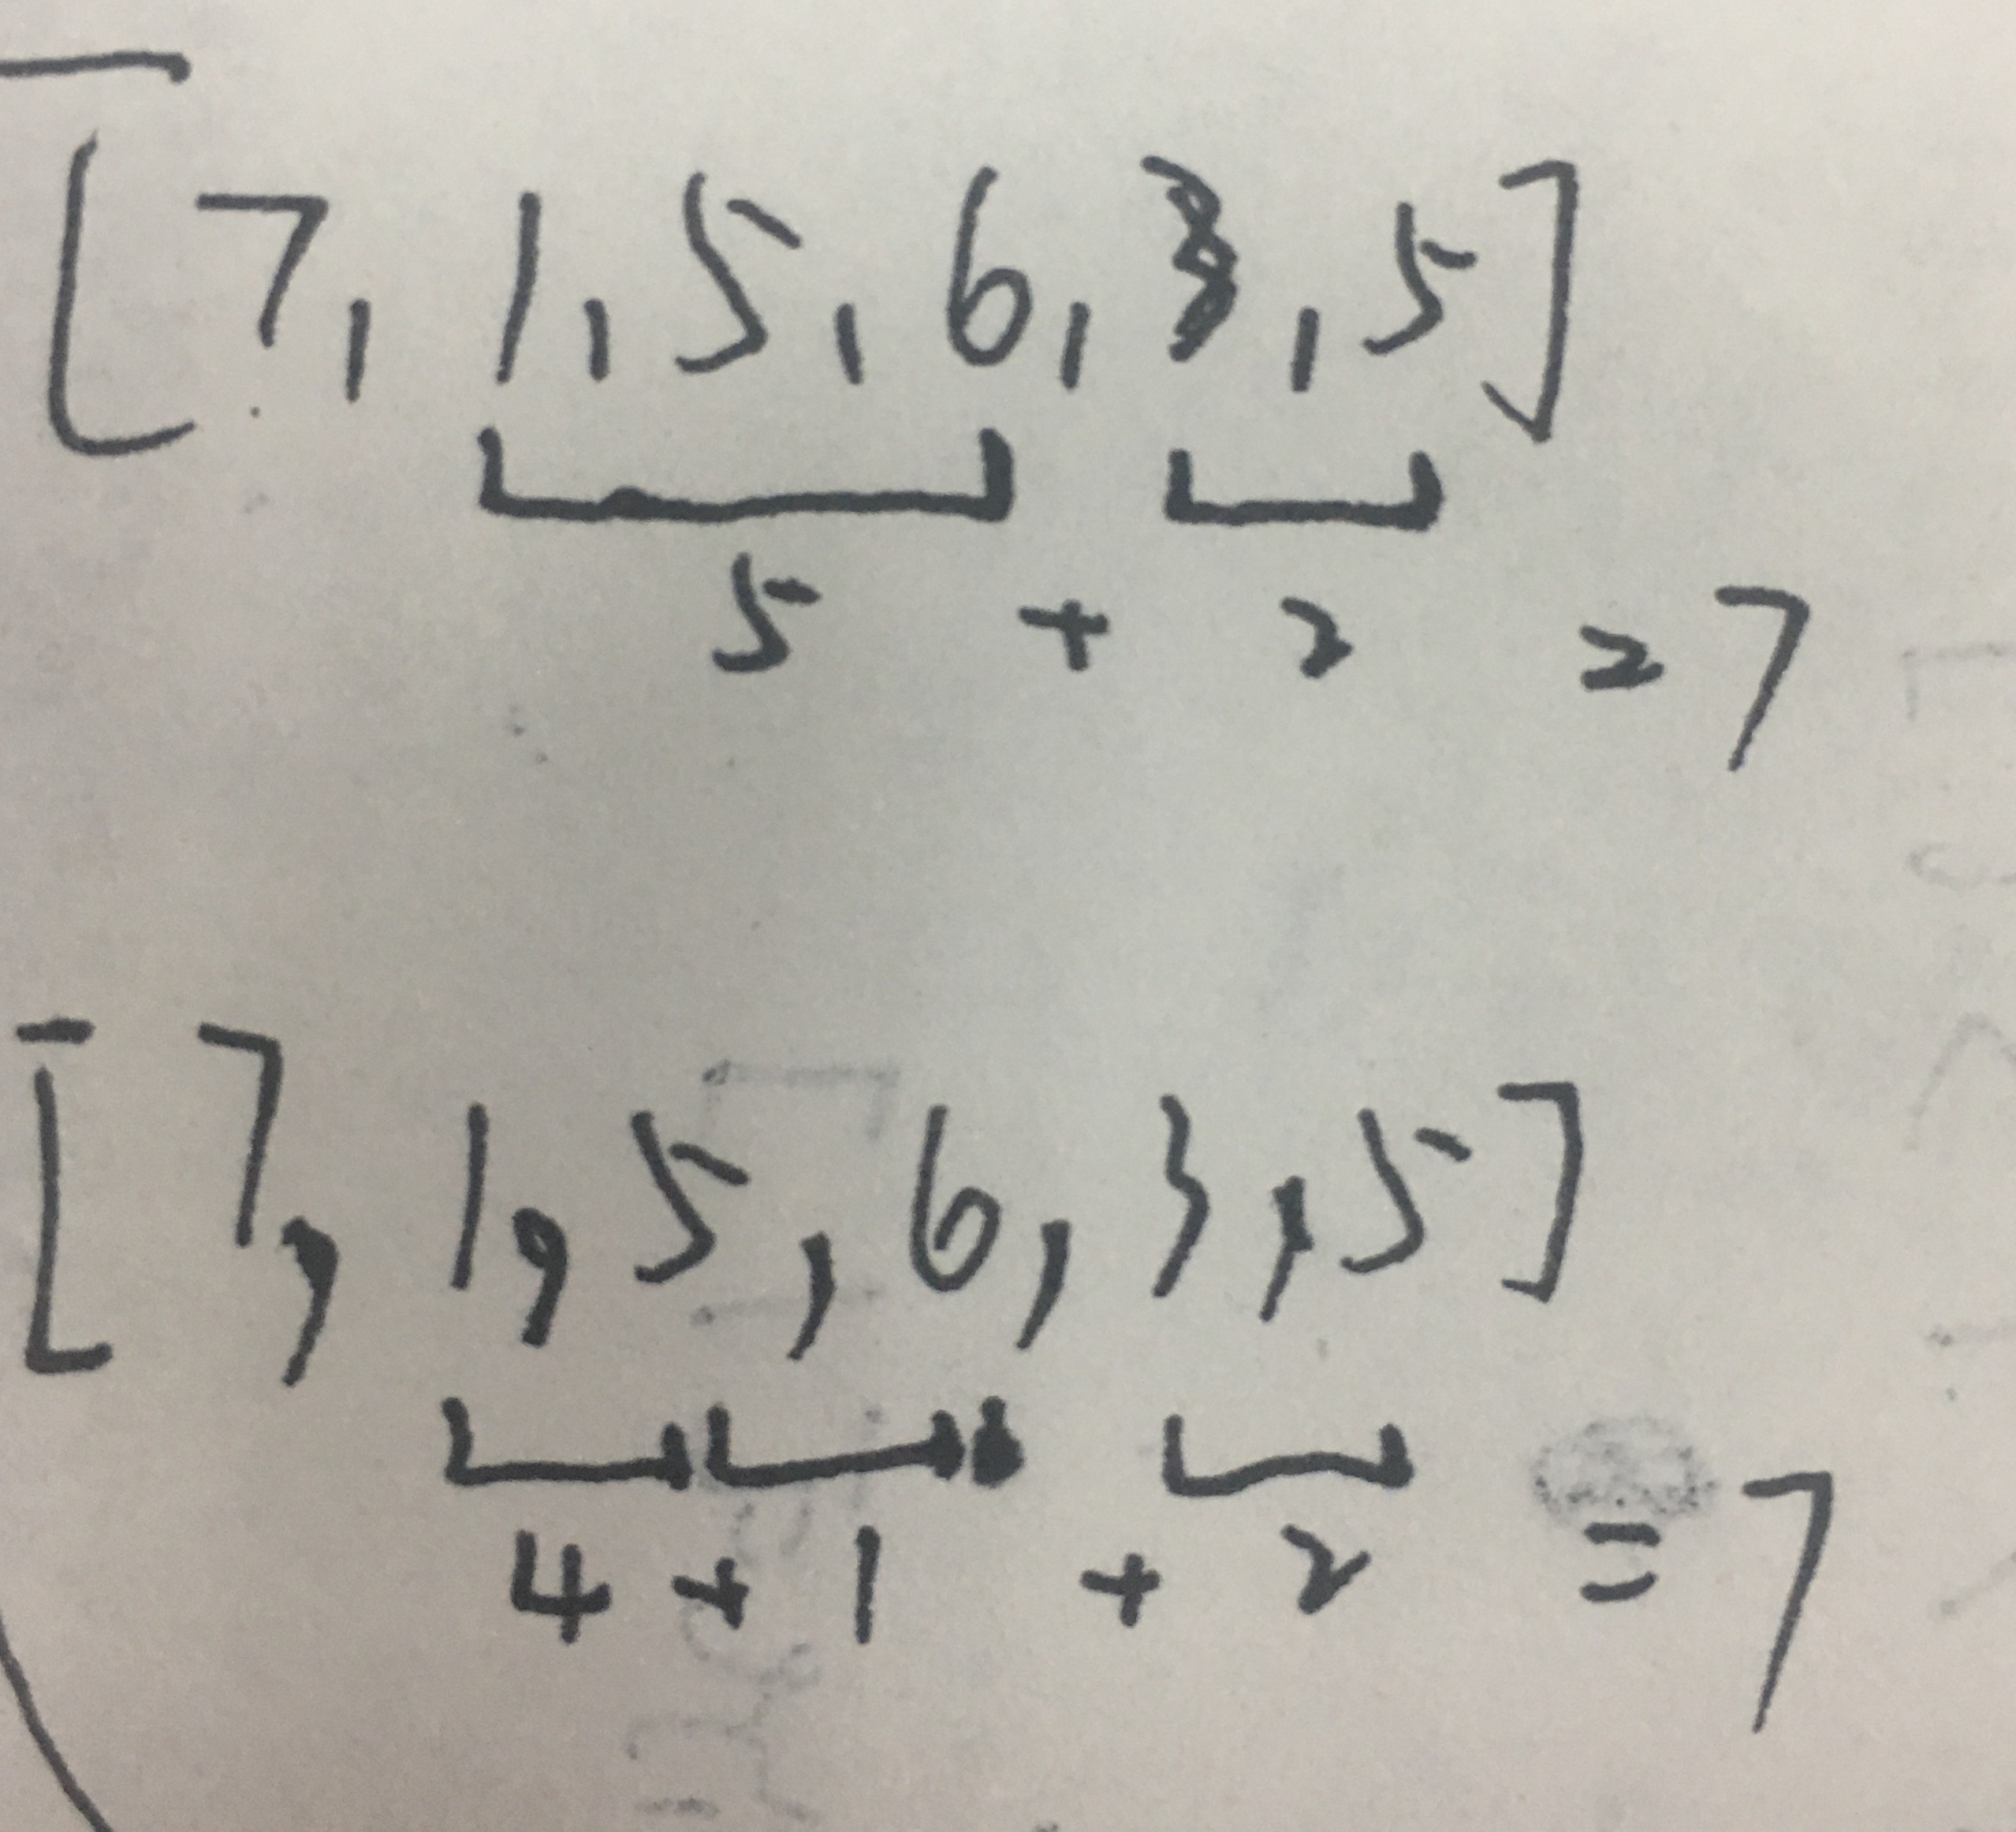 [7, 1, 5, 6, 3, 5]
5 + 2 = 7
[7, 1, 5, 6, 3, 5]
4 + 1 + 2 = 7